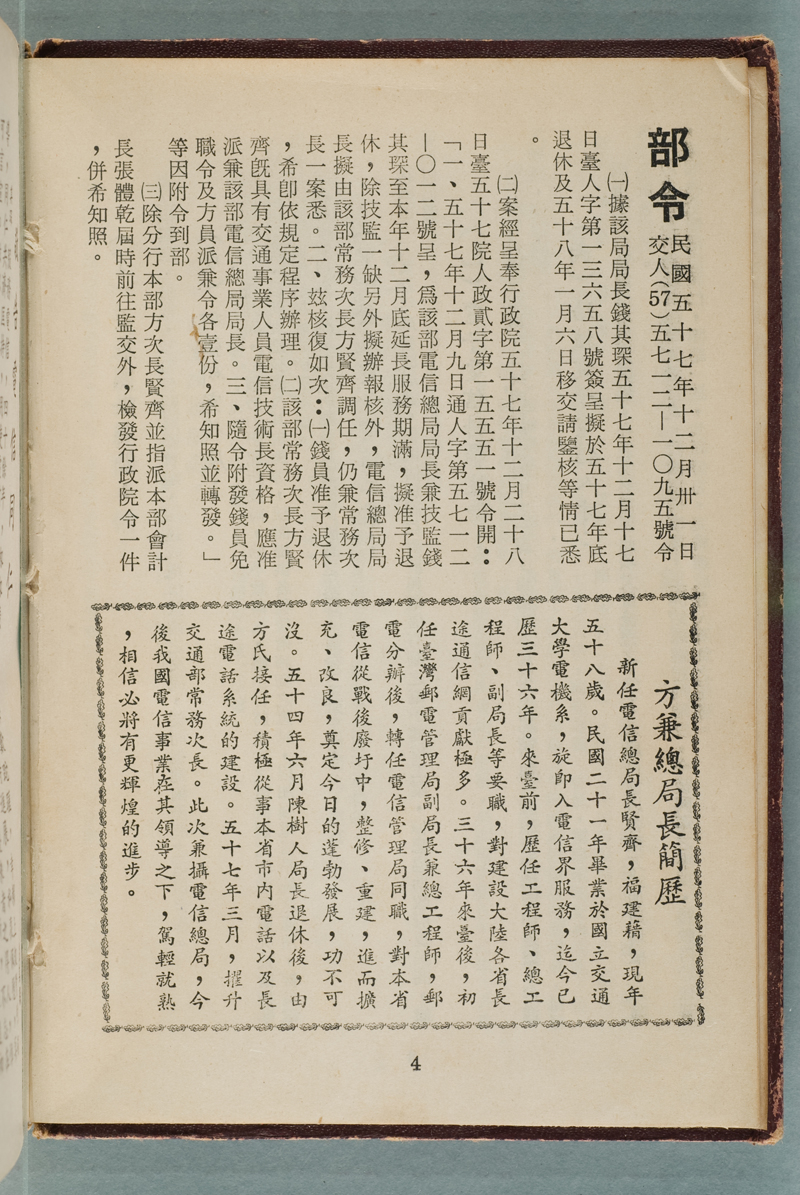 部令
民國五十七年十二月卅一日
交人(57)五七一二—一〇九五號令
㈠據該局局長錢其琛五十七年十二月十七
日臺人字第一三六五八號簽呈擬於五十七年底
退休及五十八年一月六日移交請鑒核等情已悉
。
㈡案經呈奉行政院五十七年十二月二十八
日臺五十七院人政貳字第一五五五一號令開：
「一、五十七年十二月九日通人字第五七一二
—〇一二號呈，爲該部電信總局局長兼技監錢
其琛至本年十二月底延長服務期滿，擬准予退
休，除技監一缺另外擬辦報核外，電信總局局
長擬由該部常務次長方賢齊調任，仍兼常務次
長一案悉。二、玆核復如次：㈠錢員准予退休
，希卽依規定程序辦理。㈡該部常務次長方賢
齊旣具有交通事業人員電信技術長資格，應准
派兼該部電信總局局長。三、隨令附發錢員免
職令及方員派兼令各壹份，希知照並轉發。」
等因附令到部。
㈢除分行本部方次長賢齊並指派本部會計
長張體乾屆時前往監交外，檢發行政院令一件
，併希知照。
方兼總局長簡歷
新任電信總局長賢齊，福建籍，現年
五十八歲。民國二十一年畢業於國立交通
大學電機系，旋卽入電信界服務，迄今已
歷三十六年。來臺前，歷任工程師、總工
程師、副局長等要職，對建設大陸各省長
途通信網貢獻極多。三十六年來臺後，初
任臺灣郵電管理局副局長兼總工程師，郵
電分辦後，轉任電信管理局同職，對本省
電信從戰後廢圩中，整修、重建，進而擴
充、改良，奠定今日的蓬勃發展，功不可
沒。五十四年六月陳樹人局長退休後，由
方氏接任，積極從事本省市內電話以及長
途電話系統的建設。五十七年三月，擢升
交通部常務次長。此次兼攝電信總局，今
後我國電信事業在其領導之下，駕輕就熟
，相信必將有更輝煌的進步。
4